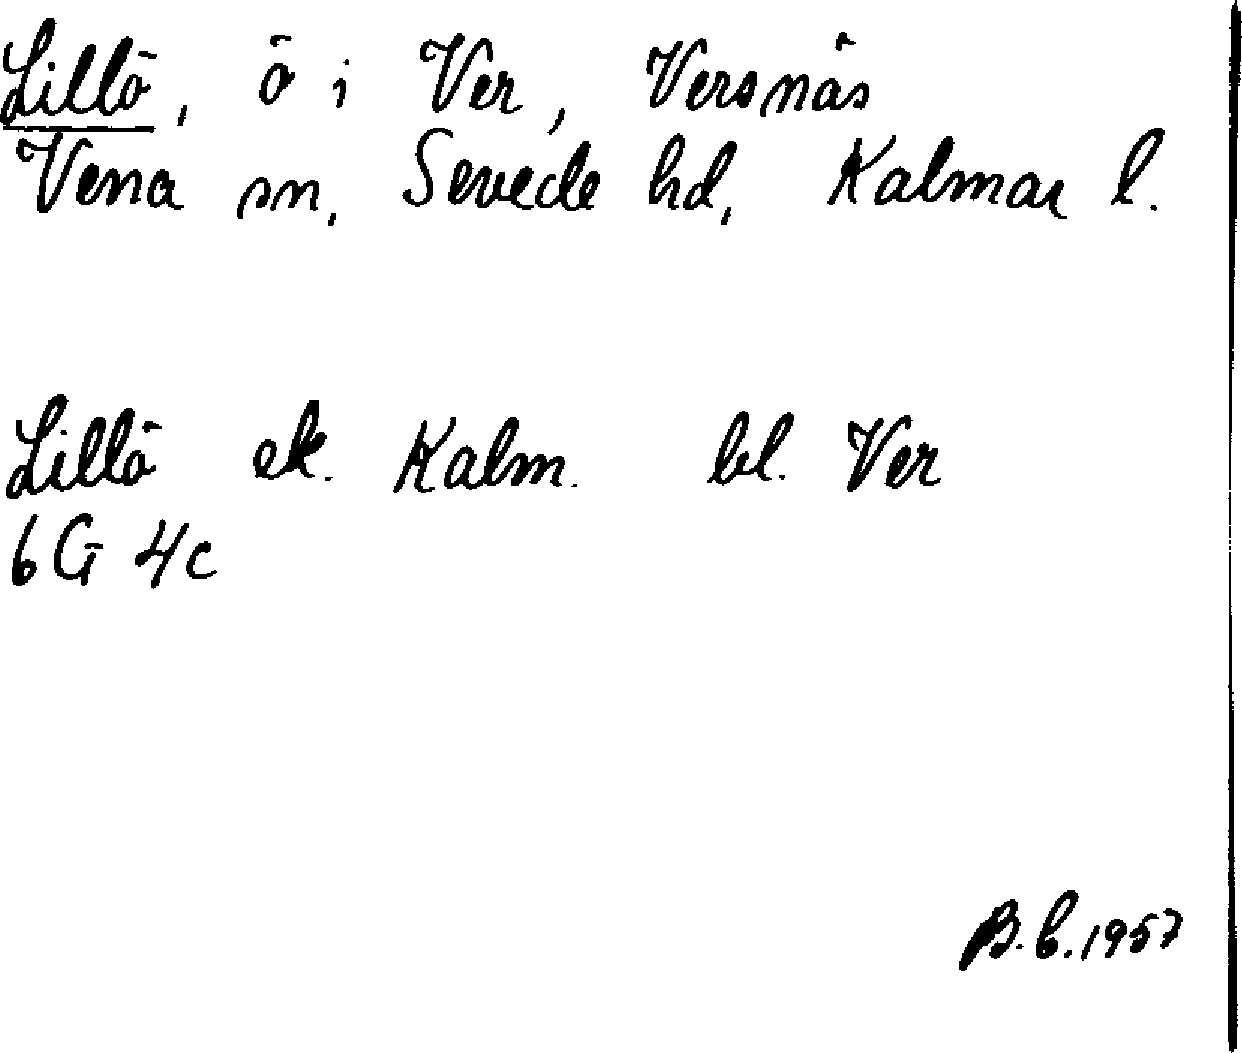 Lillö, ö i Ver, Versnäs
Vena sn, Sevede hd, Kalmar l.
Lillö ek. Kalm. bl. Ver
6G 4c
B.b.1957